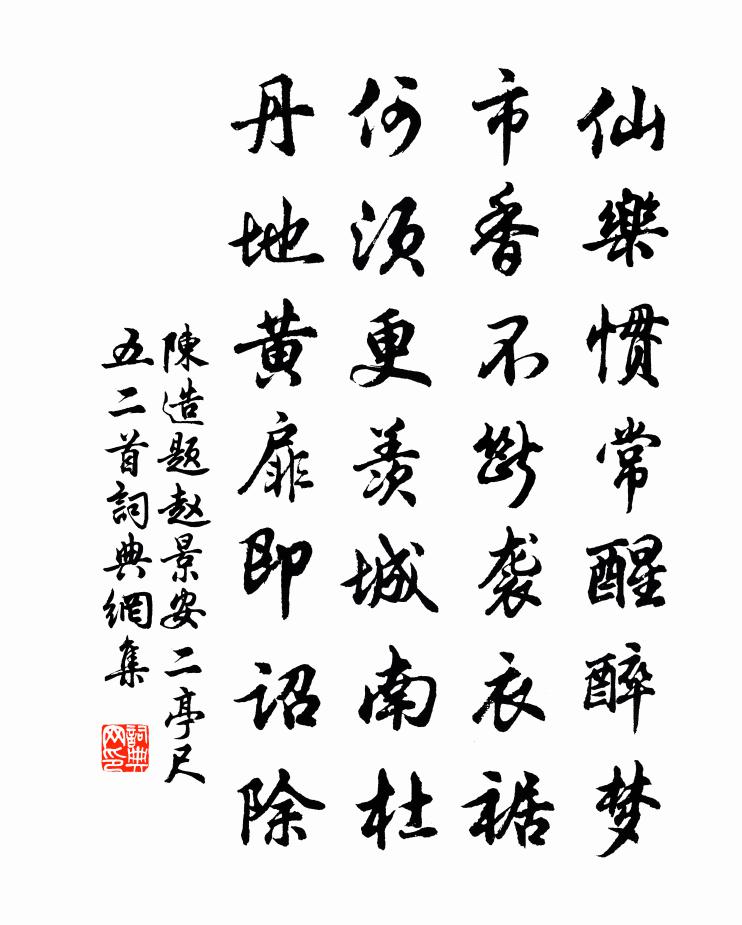 仙樂惯常醒醉梦
市香不斷袭衣裾
何須更羨城南杜
丹地黄扉即詔除
陳造题赵景安二亭尺
五二首詞典網集
詞典
网印